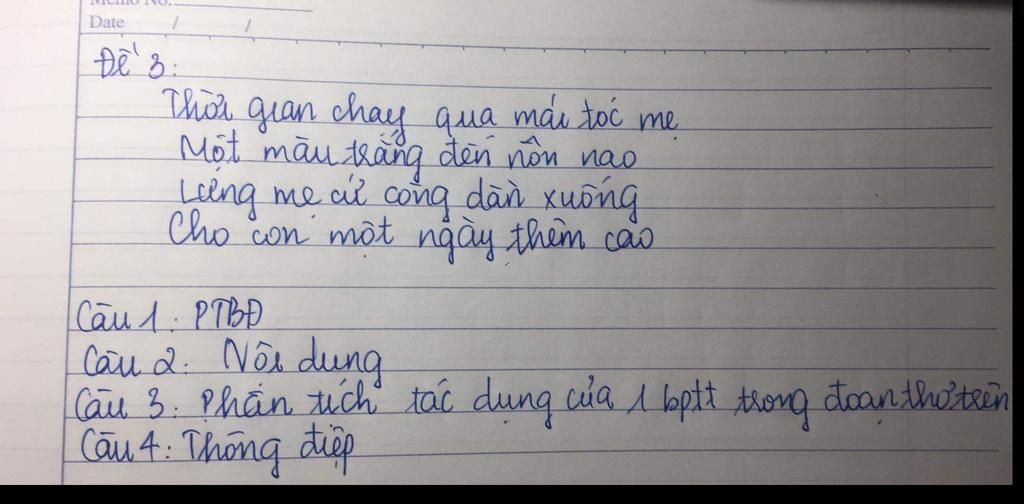 Memo No.
Date / /
Đề 3:
Thời gian chạy qua mái tóc mẹ
Một màu trắng đến nôn nao
Lưng mẹ cứ còng dần xuống
Cho con một ngày thêm cao
Câu 1: PTBĐ
Câu 2: Nội dung
Câu 3: Phân tích tác dụng của 1 bptt trong đoạn thơ trên
Câu 4: Thông điệp